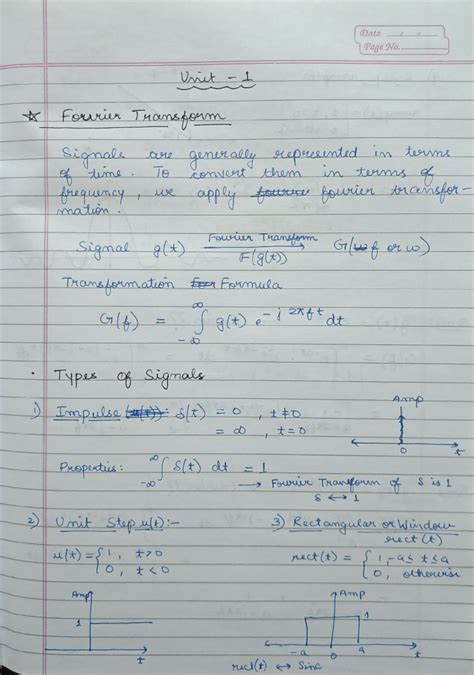 Date / /
Page No.
Unit - 1
☆ Fourier Transform
Signals are generally represented in terms
of time. To convert them in terms of
frequency, we apply fourier transfor-
mation.
Signal g(t) —Fourier Transform / F(g(t))→ G(f or w)
Transformation Formula
G(f) = ∫_{-∞}^{∞} g(t) e^{-j2πft} dt
· Types of Signals
1) Impulse : δ(t) = 0 , t ≠ 0
= ∞ , t = 0
Amp
t
Properties: ∫_{-∞}^{∞} δ(t) dt = 1
→ Fourier Transform of δ is 1
δ ↔ 1
2) Unit Step u(t):-
u(t) = { 1, t>0
0, t<0
Amp
1
t
3) Rectangular or Window
rect(t)
rect(t) = { 1, -a ≤ t ≤ a
0, otherwise
Amp
1
-a 0 a t
rect(t) ↔ Sinc